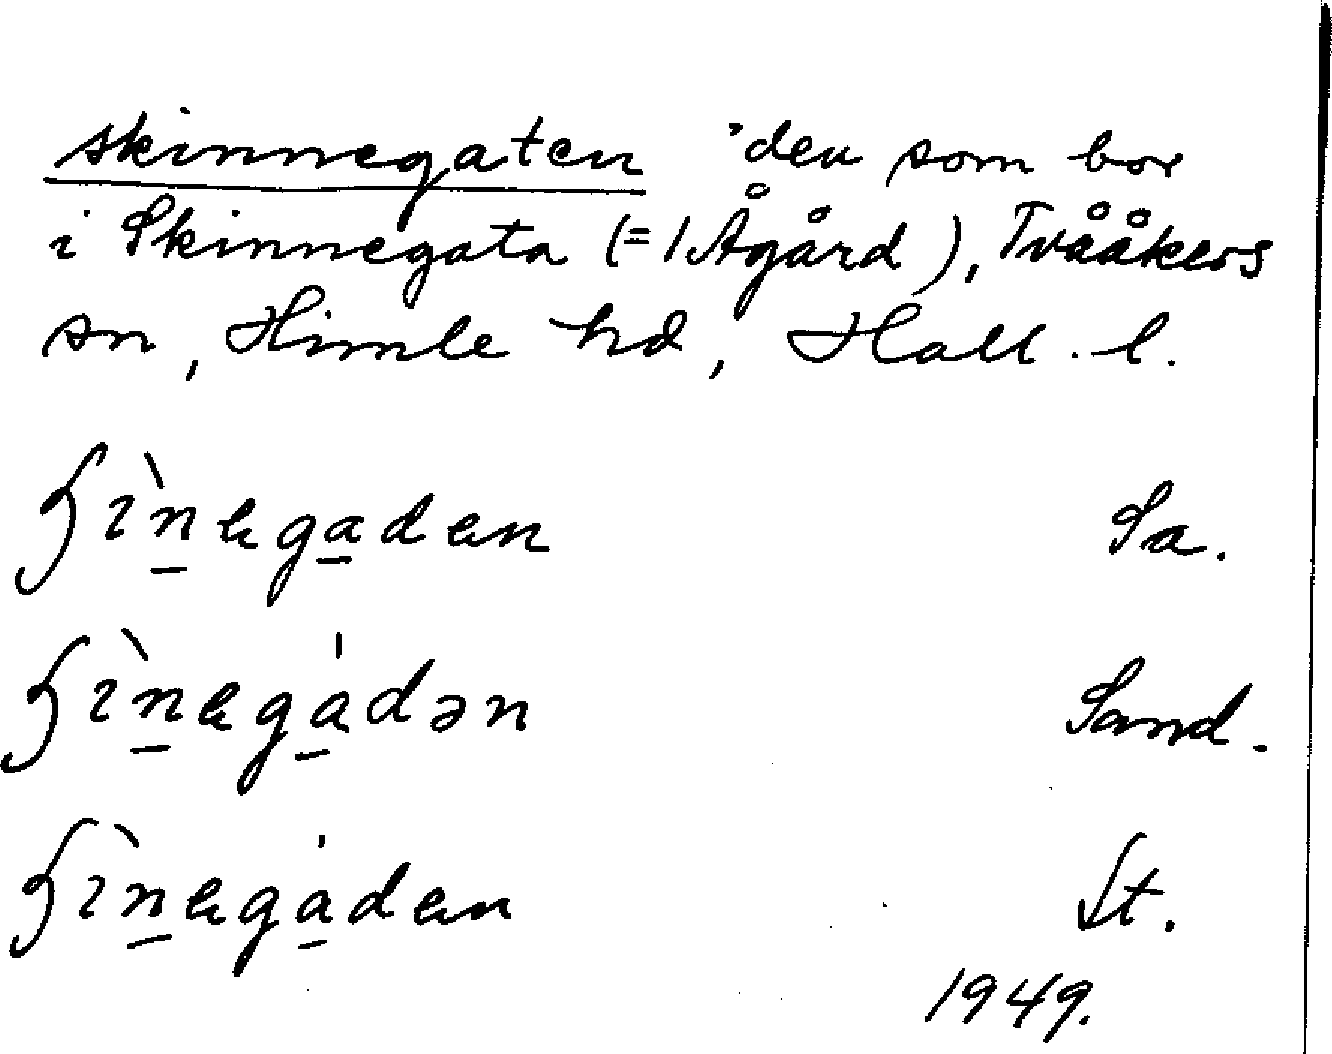 skinnegaten "den som bor
i Skinnegata (= 1 Ågård), Tvååkers
sn, Himle hd, Hall. l.
Sa.
Sand.
St.
1949.